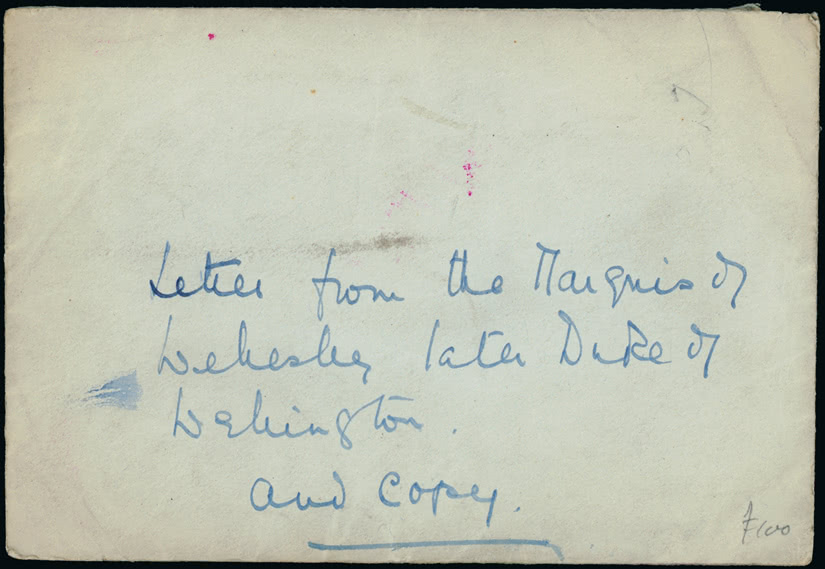 Letter from the Marquis of
Wellesley later Duke of
Wellington.
and Copy.